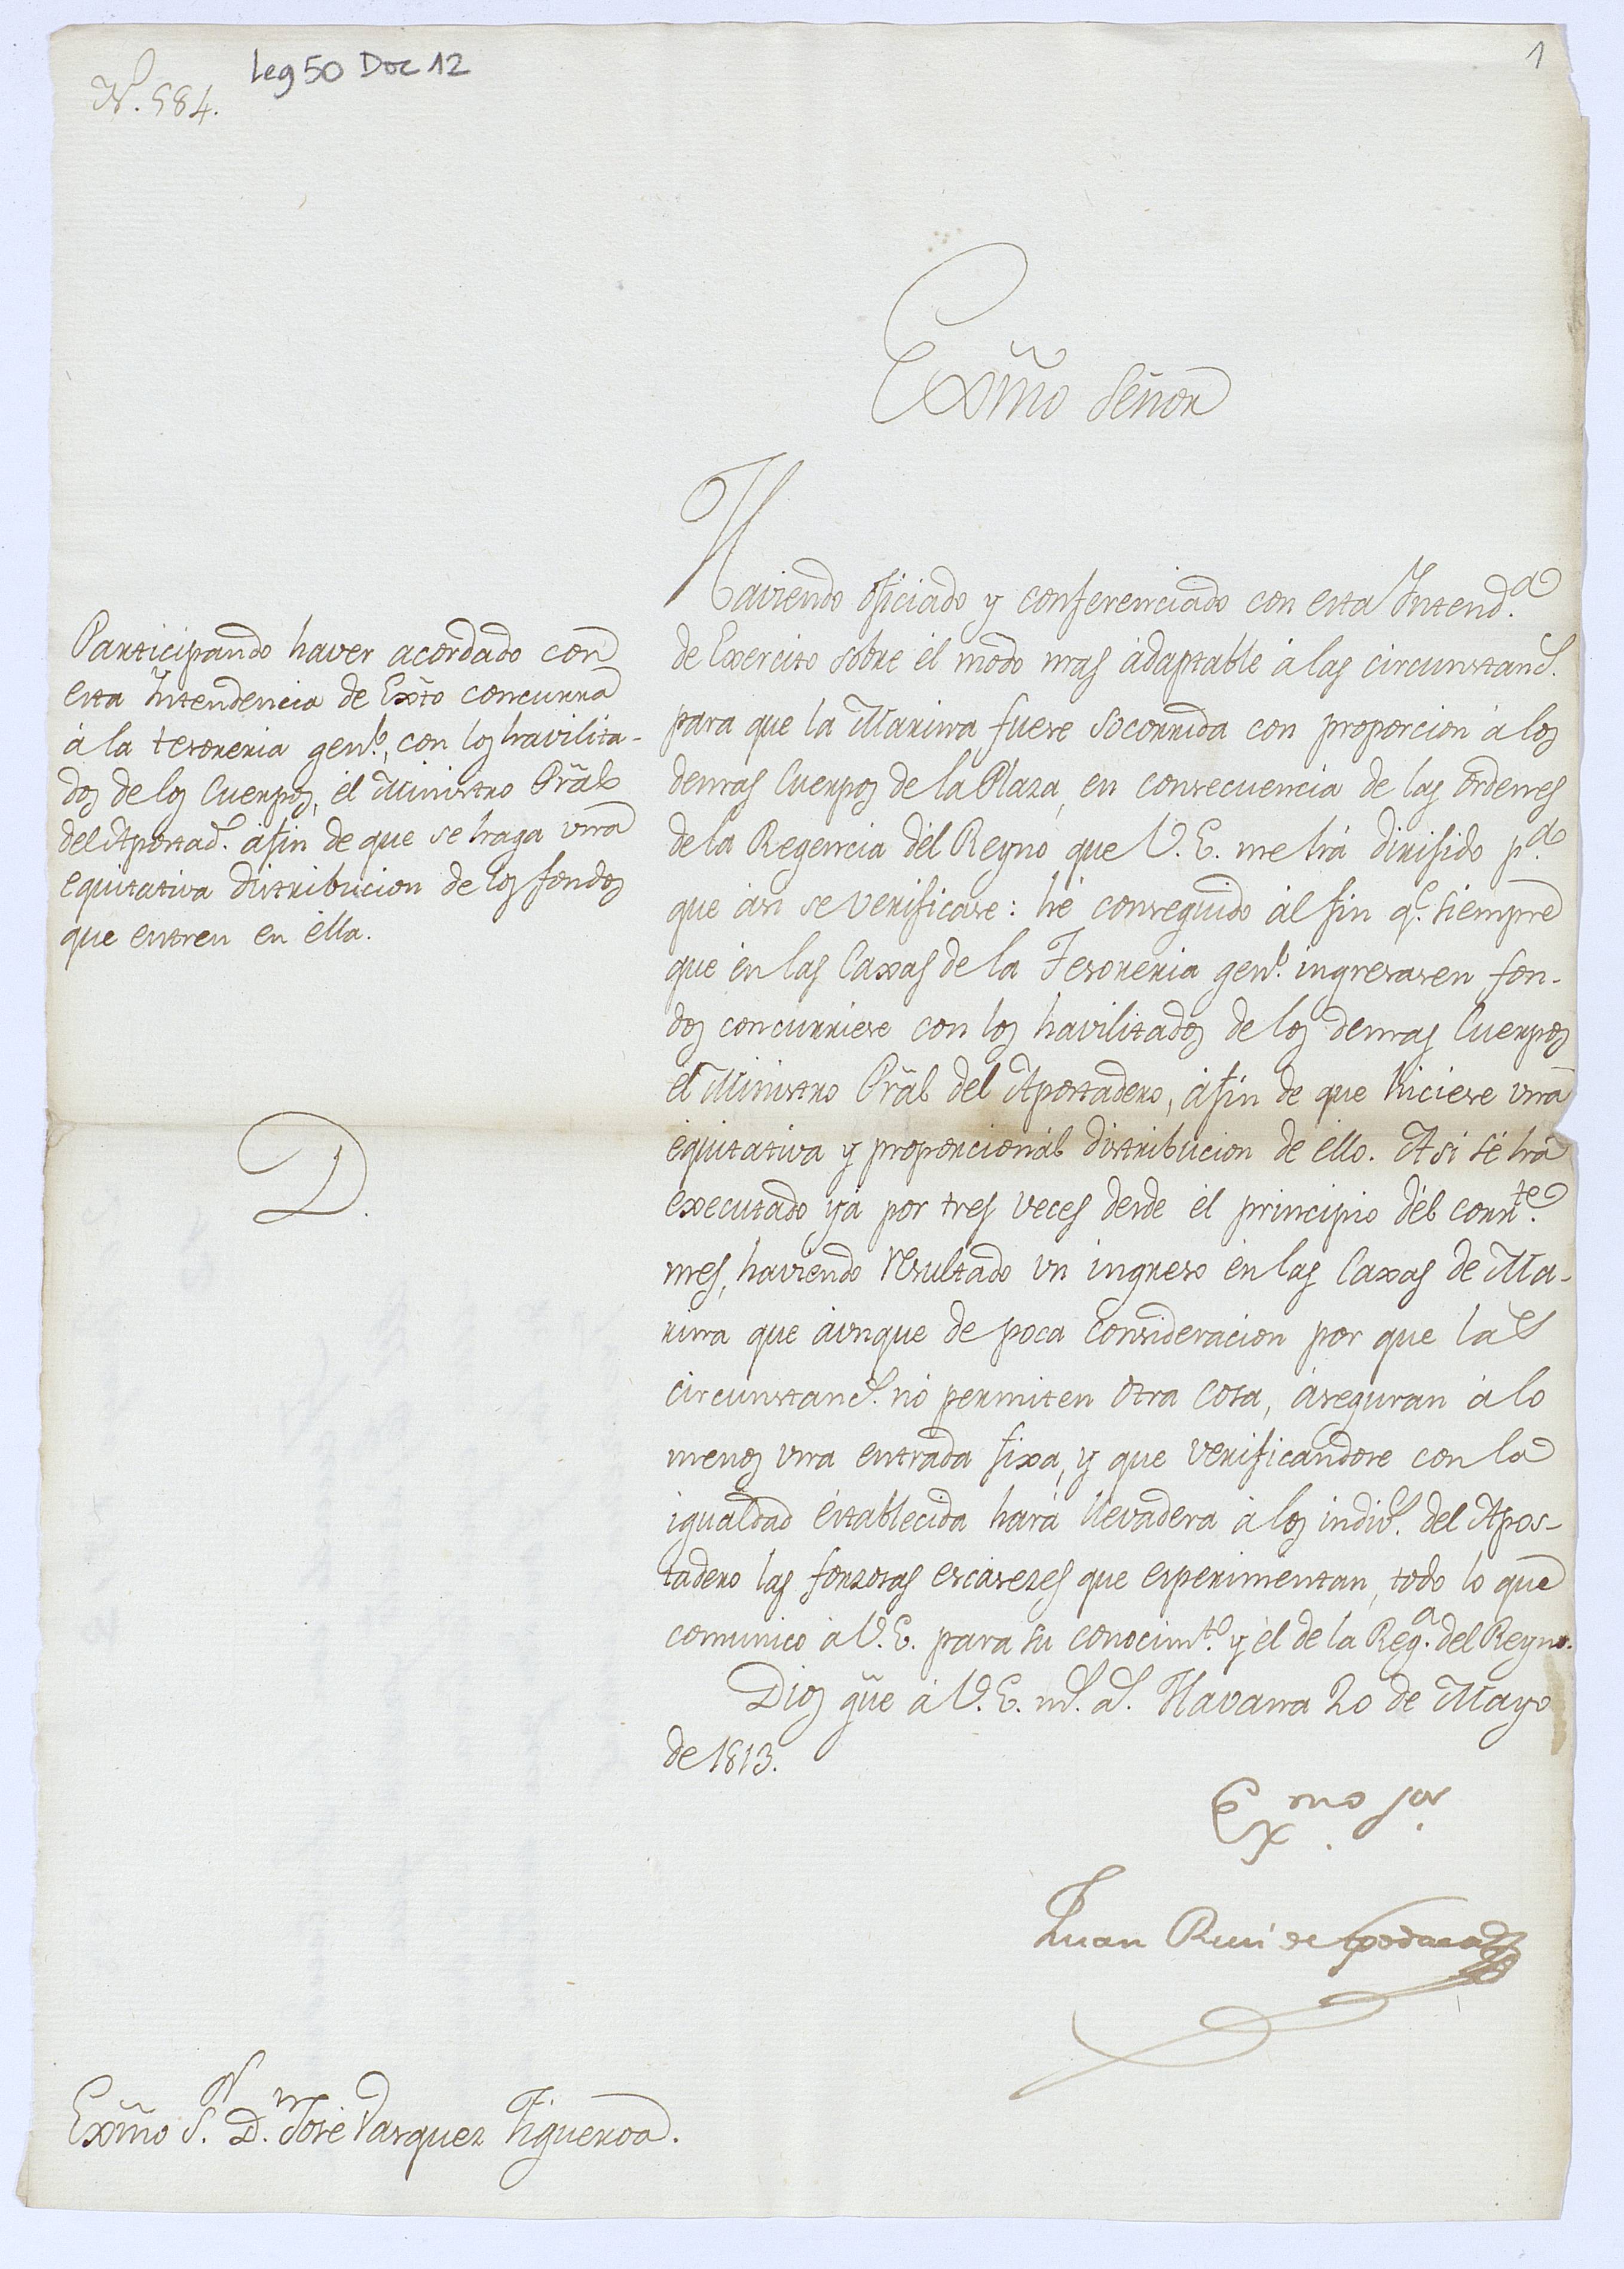 Leg 50 Doc 12
1
N.º 584.
Exm̃o Señor
Participando haver acordado con
esta Intendencia de Exṫo concurra
á la tesoreria gen.l, con los havilita-
dos de los Cuerpos, él Ministro Prãl
del Apostad.o áfin de que se haga una
equitativa distribucion de los fondos
que entren en élla.
D.
Haviendo oficiado y conferenciado con esta Intend.a
de Exercito sobre él modo mas ádaptable á las circunstanc.s
para que la Marina fuese socorrida con proporcion á los
demas Cuerpos de la Plaza, en consecuencia de las ordenes
de la Regencia dél Reyno que V. E. me há dirigido p.a
que ási se verificase: hé conseguido ál fin q.e siempre
que én las Caxas de la Tesoreria gen.l ingresasen fon-
dos concurriese con los havilitados de los demas Cuerpos
él Ministro Prãl del Apostadero, áfin de que hiciese una
équitativa y proporcionál distribucion de éllo. Asi sé há
executado yá por tres veces desde él principio dél corr.te
mes, haviendo resultado un ingreso én las Caxas de Ma-
rina que áunque de poca consideracion por que las
circunstanc.s nó permiten otra cosa, áseguran á lo
menos una entrada fixa, y que verificandose con la
igualdad éstablecida hará llevadera á los indiv.s del Apos-
tadero las forzosas escaseses que esperimentan, todo lo que
comunico á V. E. para su conocim.to y él de la Reg.a del Reyno.
Dios gũe á V. E. m.s a.s Havana 20 de Mayo
de 1813.
Exmo Sor.
Juan Ruiz de Apodaca
Exm̃o S.r D.n José Vazquez Figueroa.